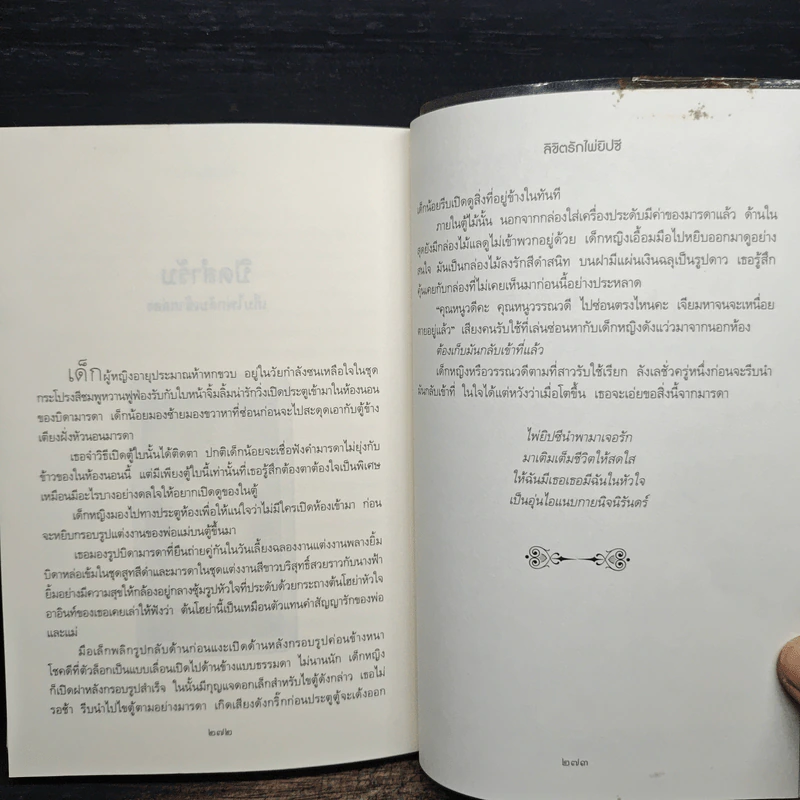 เด็กผู้หญิงอายุประมาณห้าหกขวบ อยู่ในวัยกำลังซนเหลือใจในชุด
กระโปรงสีชมพูหวานฟูฟ่องรับกับใบหน้าจิ้มลิ้มน่ารักวิ่งเปิดประตูเข้ามาในห้องนอน
ของบิดามารดา เด็กน้อยมองซ้ายมองขวาหาที่ซ่อนก่อนจะไปสะดุดเอากับตู้ข้าง
เตียงฝั่งหัวนอนมารดา
เธอจำวิธีเปิดตู้ใบนั้นได้ติดตา ปกติเด็กน้อยจะเชื่อฟังคำมารดาไม่ยุ่งกับ
ข้าวของในห้องนอนนี้ แต่มีเพียงตู้ใบนี้เท่านั้นที่เธอรู้สึกต้องตาต้องใจเป็นพิเศษ
เหมือนมีอะไรบางอย่างดลใจให้อยากเปิดดูของในตู้
เด็กหญิงมองไปทางประตูห้องเพื่อให้แน่ใจว่าไม่มีใครเปิดห้องเข้ามา ก่อน
จะหยิบกรอบรูปแต่งงานของพ่อแม่บนตู้ขึ้นมา
เธอมองรูปบิดามารดาที่ยืนถ่ายคู่กันในวันเลี้ยงฉลองงานแต่งงานพลางยิ้ม
บิดาหล่อเข้มในชุดสูทสีดำและมารดาในชุดแต่งงานสีขาวบริสุทธิ์สวยราวกับนางฟ้า
ยิ้มอย่างมีความสุขให้กล้องอยู่กลางซุ้มรูปหัวใจที่ประดับด้วยกระถางต้นโฮย่าหัวใจ
อาอินท์ของเธอเคยเล่าให้ฟังว่า ต้นโฮย่านี้เป็นเหมือนตัวแทนคำสัญญารักของพ่อ
และแม่
มือเล็กพลิกรูปกลับด้านก่อนแงะเปิดด้านหลังกรอบรูปค่อนข้างหนา
โชคดีที่ตัวล็อกเป็นแบบเลื่อนเปิดไปด้านข้างแบบธรรมดา ไม่นานนัก เด็กหญิง
ก็เปิดฝาหลังกรอบรูปสำเร็จ ในนั้นมีกุญแจดอกเล็กสำหรับไขตู้ดังกล่าว เธอไม่
รอช้า รีบนำไปไขตู้ตามอย่างมารดา เกิดเสียงดังกริ๊กก่อนประตูตู้จะเด้งออก
๒๗๒
ลิขิตรักไพ่ยิปซี
เด็กน้อยรีบเปิดดูสิ่งที่อยู่ข้างในทันที
ภายในตู้ไม้นั้น นอกจากกล่องใส่เครื่องประดับมีค่าของมารดาแล้ว ด้านใน
สุดยังมีกล่องไม้แลดูไม่เข้าพวกอยู่ด้วย เด็กหญิงเอื้อมมือไปหยิบออกมาดูอย่าง
สนใจ มันเป็นกล่องไม้ลงรักสีดำสนิท บนฝามีแผ่นเงินฉลุเป็นรูปดาว เธอรู้สึก
คุ้นเคยกับกล่องที่ไม่เคยเห็นมาก่อนนี้อย่างประหลาด
“คุณหนูวดีคะ คุณหนูวรรณวดี ไปซ่อนตรงไหนคะ เจียมหาจนจะเหนื่อย
ตายอยู่แล้ว” เสียงคนรับใช้ที่เล่นซ่อนหากับเด็กหญิงดังแว่วมาจากนอกห้อง
ต้องเก็บมันกลับเข้าที่แล้ว
เด็กหญิงหรือวรรณวดีตามที่สาวรับใช้เรียก ลังเลชั่วครู่หนึ่งก่อนจะรีบนำ
มันกลับเข้าที่ ในใจได้แต่หวังว่าเมื่อโตขึ้น เธอจะเอ่ยขอสิ่งนี้จากมารดา
ไพ่ยิปซีนำพามาเจอรัก
มาเติมเต็มชีวิตให้สดใส
ให้ฉันมีเธอเธอมีฉันในหัวใจ
เป็นอุ่นไอแนบกายนิจนิรันดร์
๒๗๓